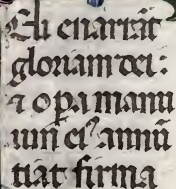 Eli enarrāt
gloriam dei:
⁊ opa manu
um eiꝰ annū
tiat firma